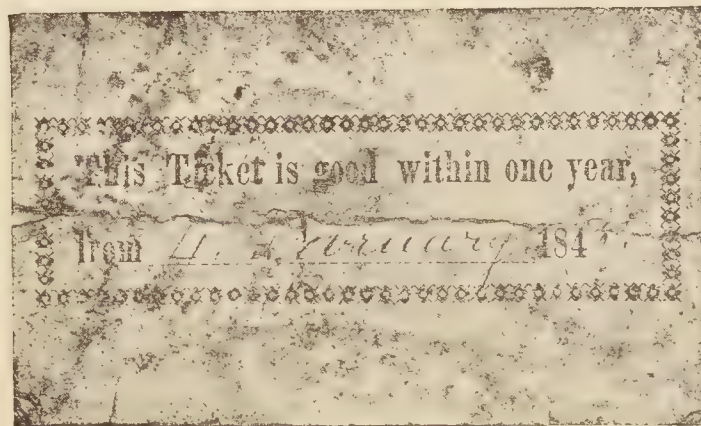 This Ticket is good within one year,
from January 184